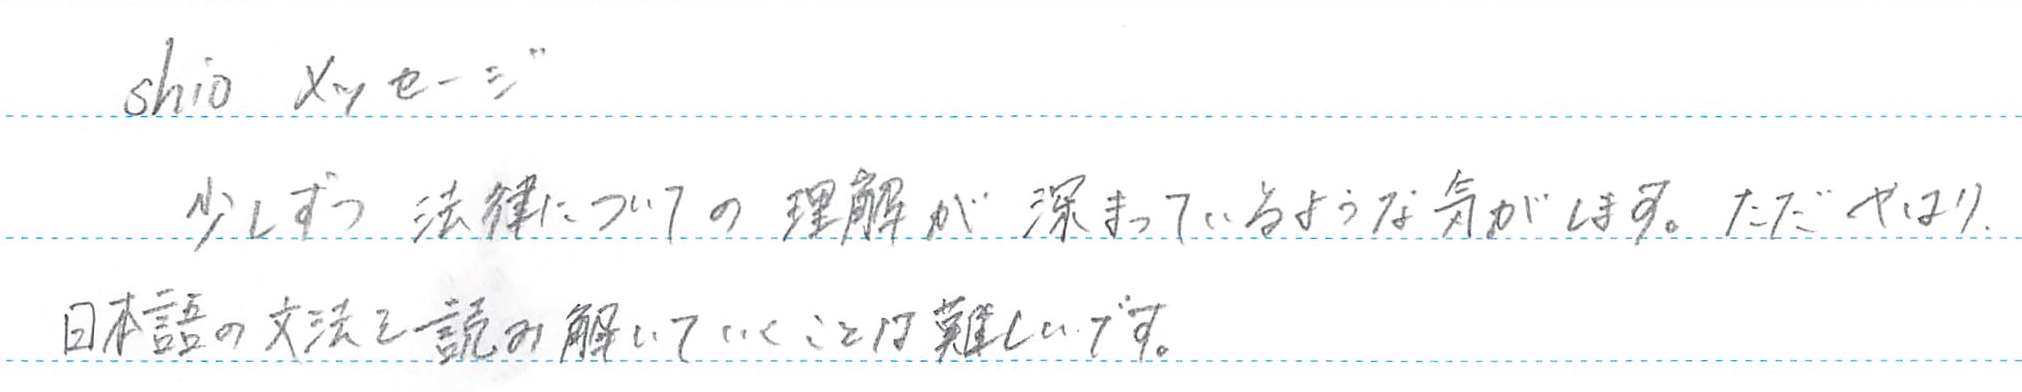 shio メッセージ
少しずつ 法律についての理解が深まっているような気がします。ただやはり、
日本語の文法を読み解いていくことは難しいです。